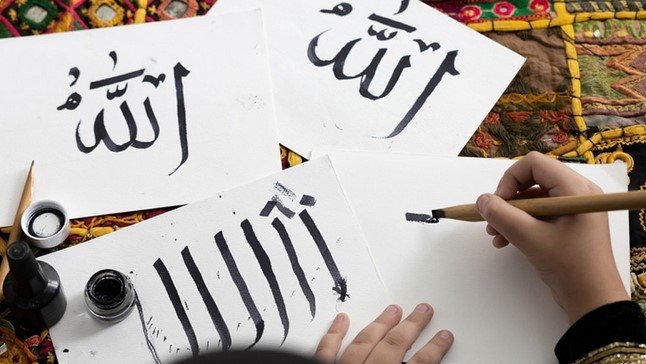 اللَّهُ
اللَّهُ